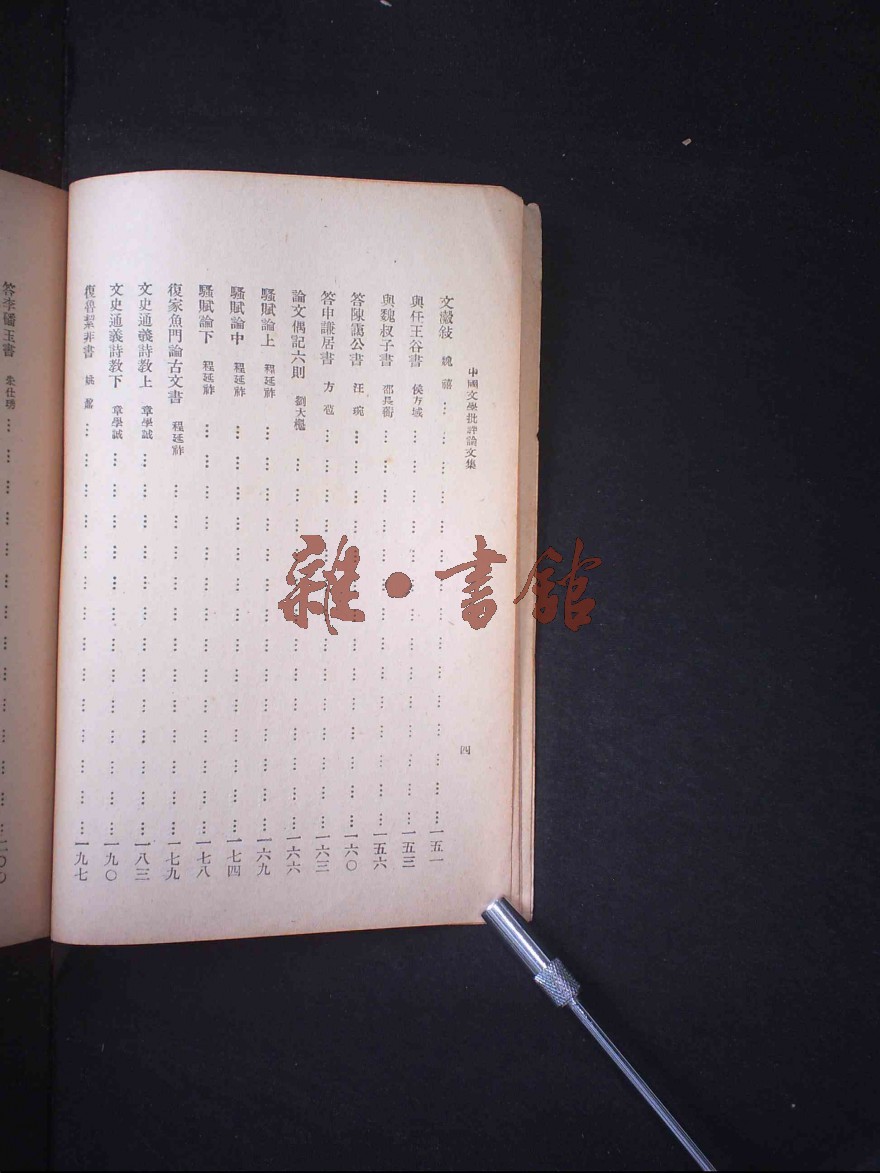 中國文學批評論文集
四
文瀫敍 魏禧 一五一
與任王谷書 侯方域 一五三
與魏叔子書 邵長蘅 一五六
答陳靄公書 汪琬 一六〇
答申謙居書 方苞 一六三
論文偶記六則 劉大櫆 一六六
騷賦論上 程廷祚 一六九
騷賦論中 程廷祚 一七四
騷賦論下 程廷祚 一七八
復家魚門論古文書 程廷祚 一七九
文史通義詩教上 章學誠 一八三
文史通義詩教下 章學誠 一九〇
復魯絜非書 姚鼐 一九七
答李磻玉書 朱仕琇 二〇〇
雜·書館